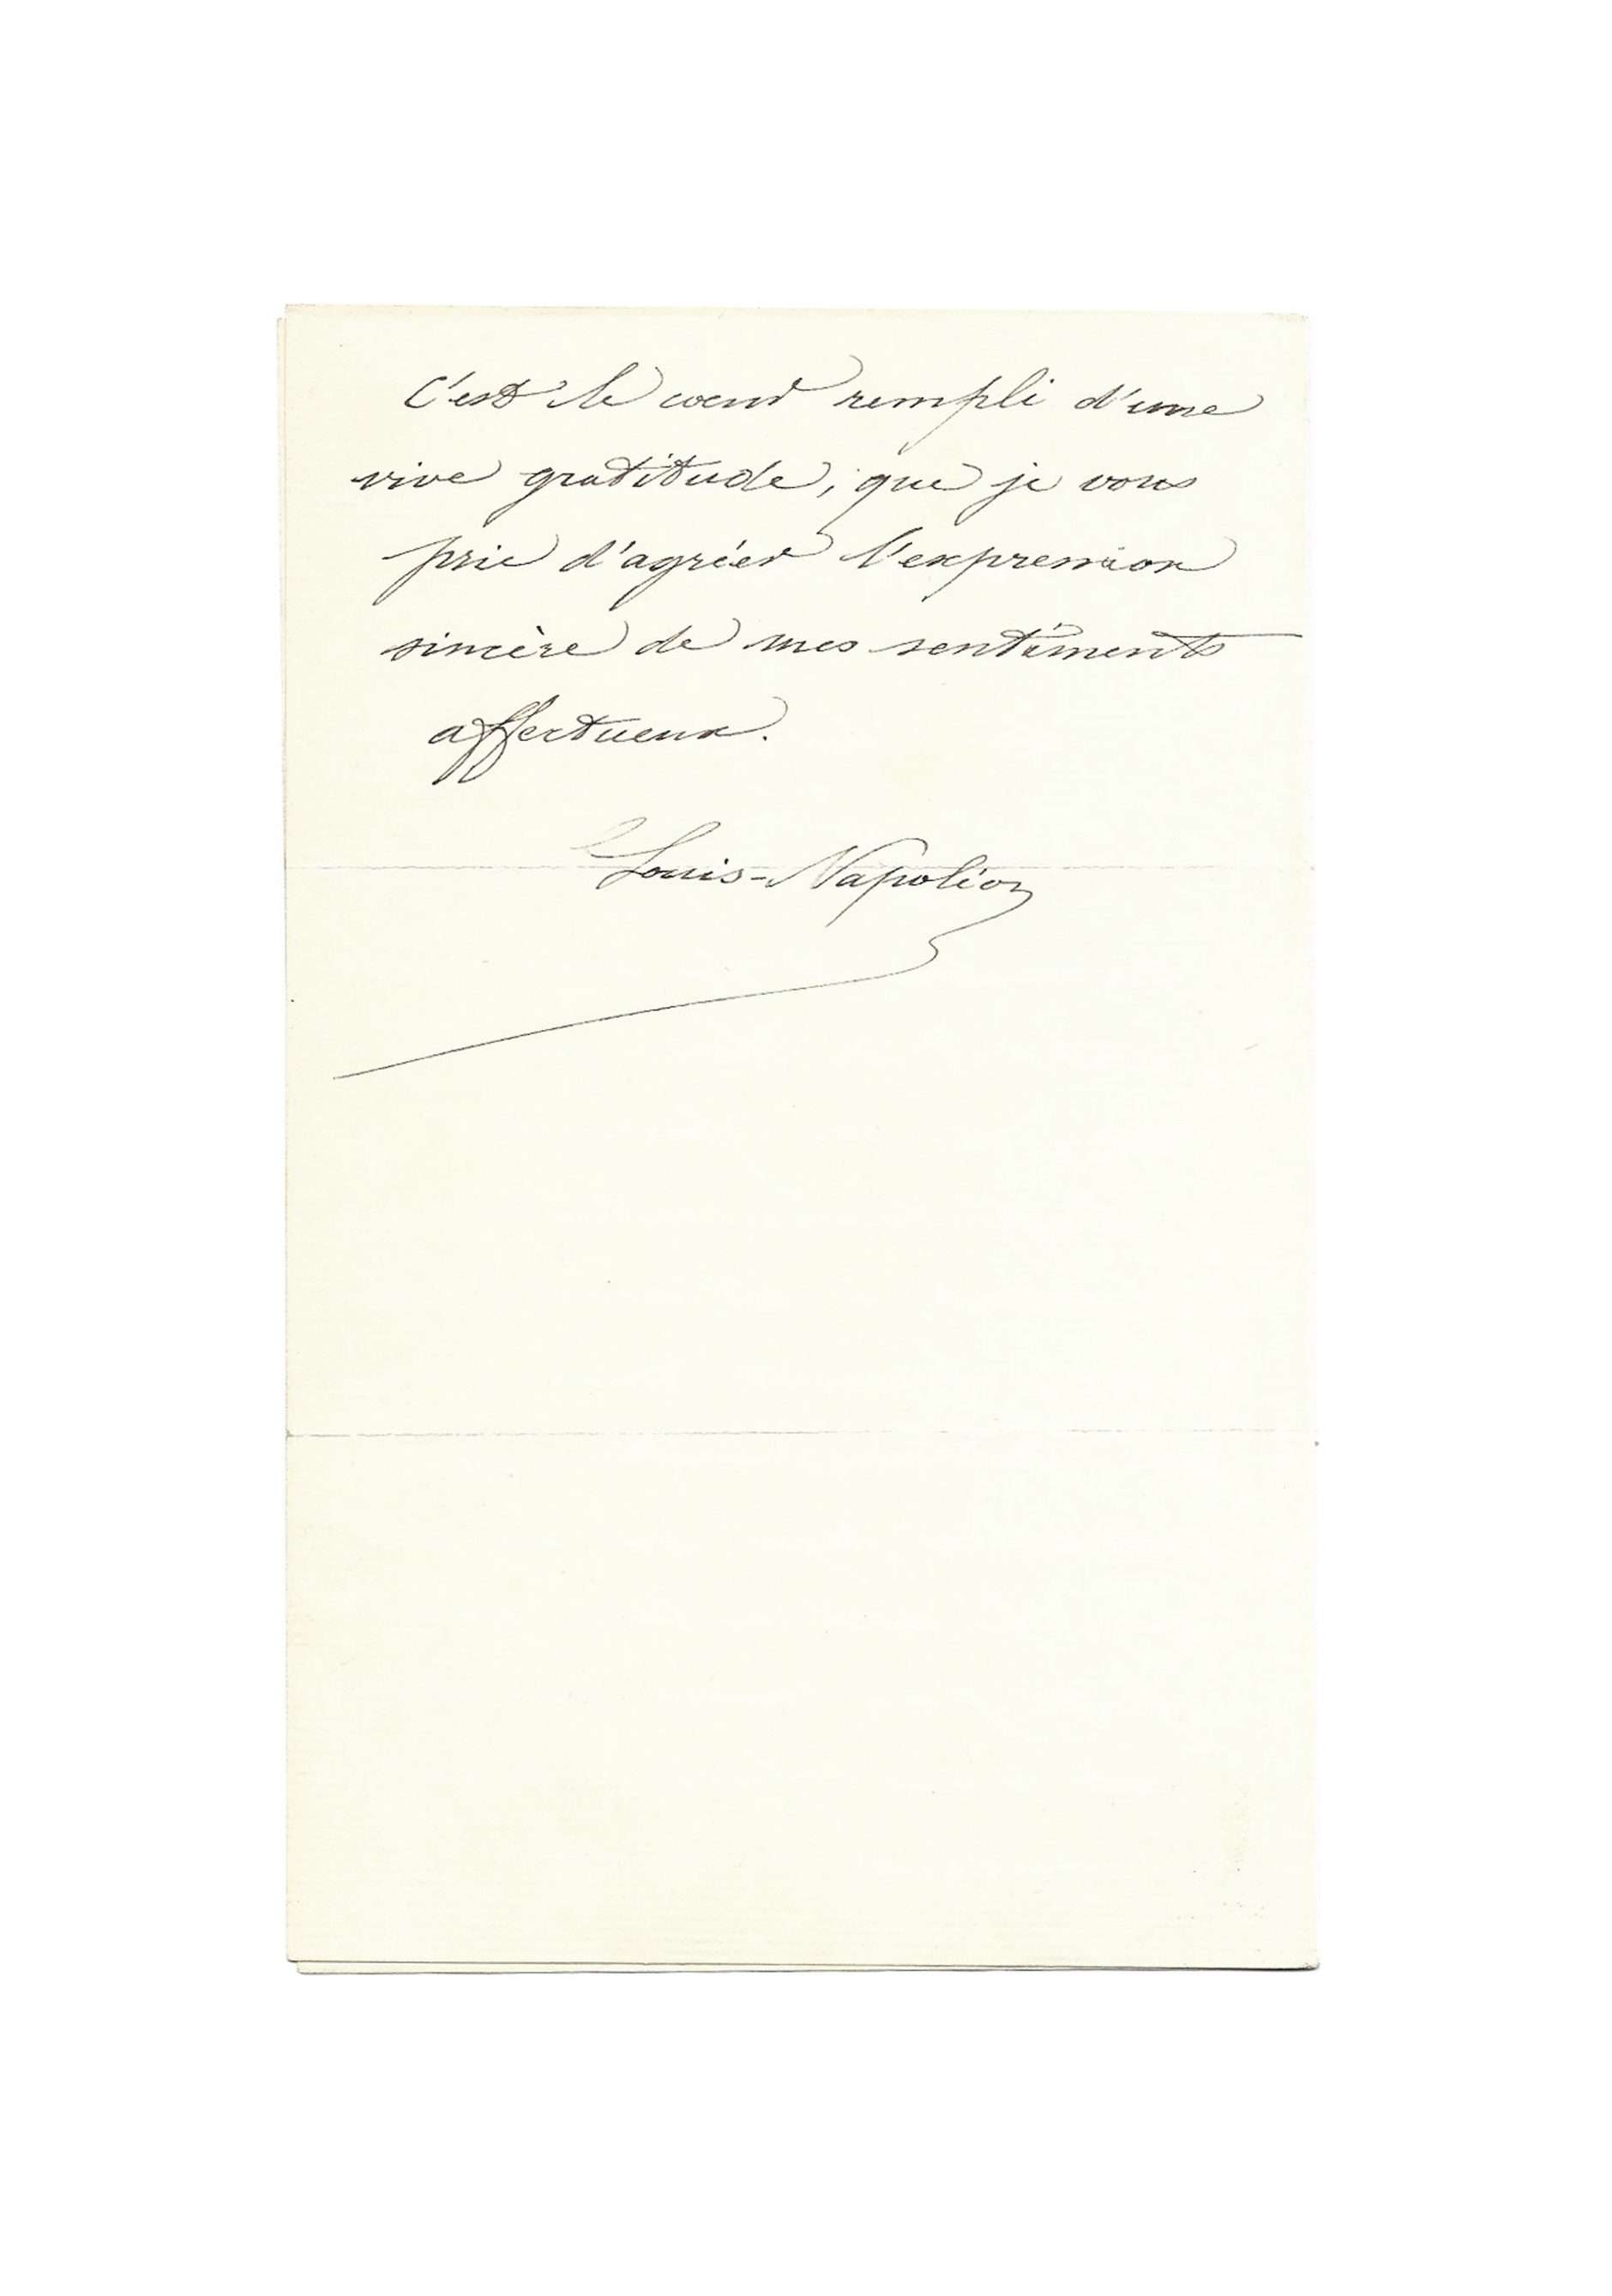 C'est le coeur rempli d'une
vive gratitude, que je vous
prie d'agréer l'expression
sincère de mes sentiments
affectueux.
Louis-Napoléon